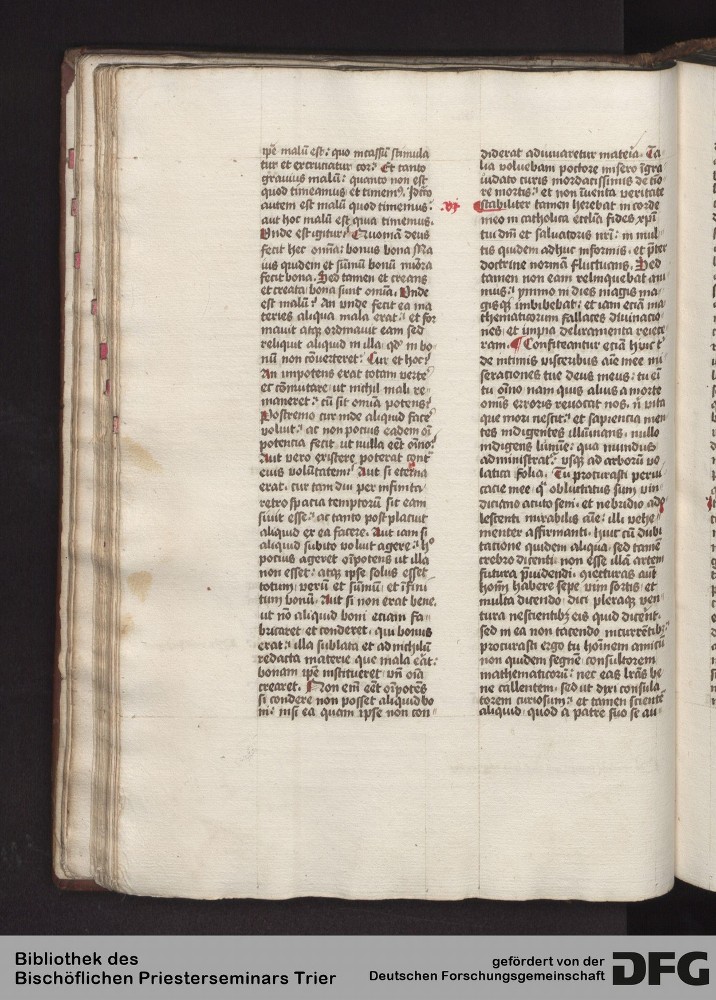 ipe malū est: quo incassū stimula
tur et excruciatur cor? Et tanto
grauius malū: quanto non est
quod timeamus et timemꝰ. Idcirco
autem est malū quod timemus:
aut hoc malū est quia timemus.
Vnde est igitur? Quoniā deus
fecit hec omīa: bonus bona Ma
ius quidem et sūmū bonū miōra
fecit bona. Sed tamen et creans
et creata bona sunt omīa. Vnde
est malū? An vnde fecit ea ma
teries aliqua mala erat: et for
mauit atqꝫ ordinauit eam sed
reliquit aliquid in illa qd in bo
nū non cōuerteret? Cur et hoc?
An impotens erat totam verte
et cōmutare ut nichil mali re
maneret? cū sit omīa potens?
Postremo cur inde aliquid face
voluit? ac non pocius eadem oī
potencia fecit ut nulla eēt oīno?
Aut vero existere poterat cont
eius volūtatem? Aut si eterna
erat. cur tam diu per infinita
retro spacia temporū sic eam
siuit esse? ac tanto post placuit
aliquid ex ea facere. Aut iam si
aliquid subito voluit agere? hͦ
pocius ageret oīpotens ut illa
non esset: atqꝫ ipse solus esset
totum verū et sūmū et īfini
tum bonū. Aut si non erat bene.
ut nō aliquid boni eciam fa
bricaret et conderet. qui bonus
erat? illa sublata et ad nichilū
redacta materie que mala eāt:
bonam ipē institueret vn̄ oīa
crearet. Non em̄ eēt oīpotēs
si condere non posset aliquid bo
ni: nisi ea quam ipse non con
diderat adiuuaretur mateīa. Ta
lia voluebam pectore misero īgra
uidato curis mordacissimis de tio
re mortis: et non īuenta veritate
xj
stabiliter tamen herebat in corde
meo in catholica ecclīa fides xpī
tui dnī et saluatoris nrī: in mul
tis quidem adhuc informis et p̄ter
doctrine normā fluctuans. Sed
tamen non eam relinquebat ani
mus? ymmo in dies magis ma
gisqꝫ imbibebat: et iam etiā ma
thematicorum fallaces diuinacio
nes et impia deliramenta reiece
ram. Confiteantur etiā hic t
de intimis visceribus aīe mee mi
seraciones tue deus meus: tu ei
tu oīno nam quis alius a morte
omīs erroris reuocat nos. nͥ vita
que mori nescit: et sapiencia men
tes indigentes illūinans. nullo
indigens lumīe: qua mundus
administrat vsqꝫ ad arborū vo
latica folia. Tu procurasti perui
cacie mee qͣ obluctatus sum vin
diciano acuto sem: et nebridio ado
lescenti mirabilis aīe: illi vehe
menter affirmanti: huic cū dubi
tacione quidem aliqua sed tamē
crebro dicenti non esse illā artem
futura p̄uidendi. ꝯiecturas aūt
homī habere sepe vim sortis et
multa dicendo: dici pleraqꝫ ven
tura nescientibꝫ eis quid dicēnt.
sed in ea non tacendo incurrētibꝫ
procurasti ergo tu hoīnem amicū
non quidem segnē consultorem
mathematicorū: nec eas lrās be
ne callentem. sed ut dixi consulta
torem curiosum: et tamen scientē
aliquid quod a patre suo se au
Bibliothek des
Bischöflichen Priesterseminars Trier
gefördert von der
Deutschen Forschungsgemeinschaft
DFG